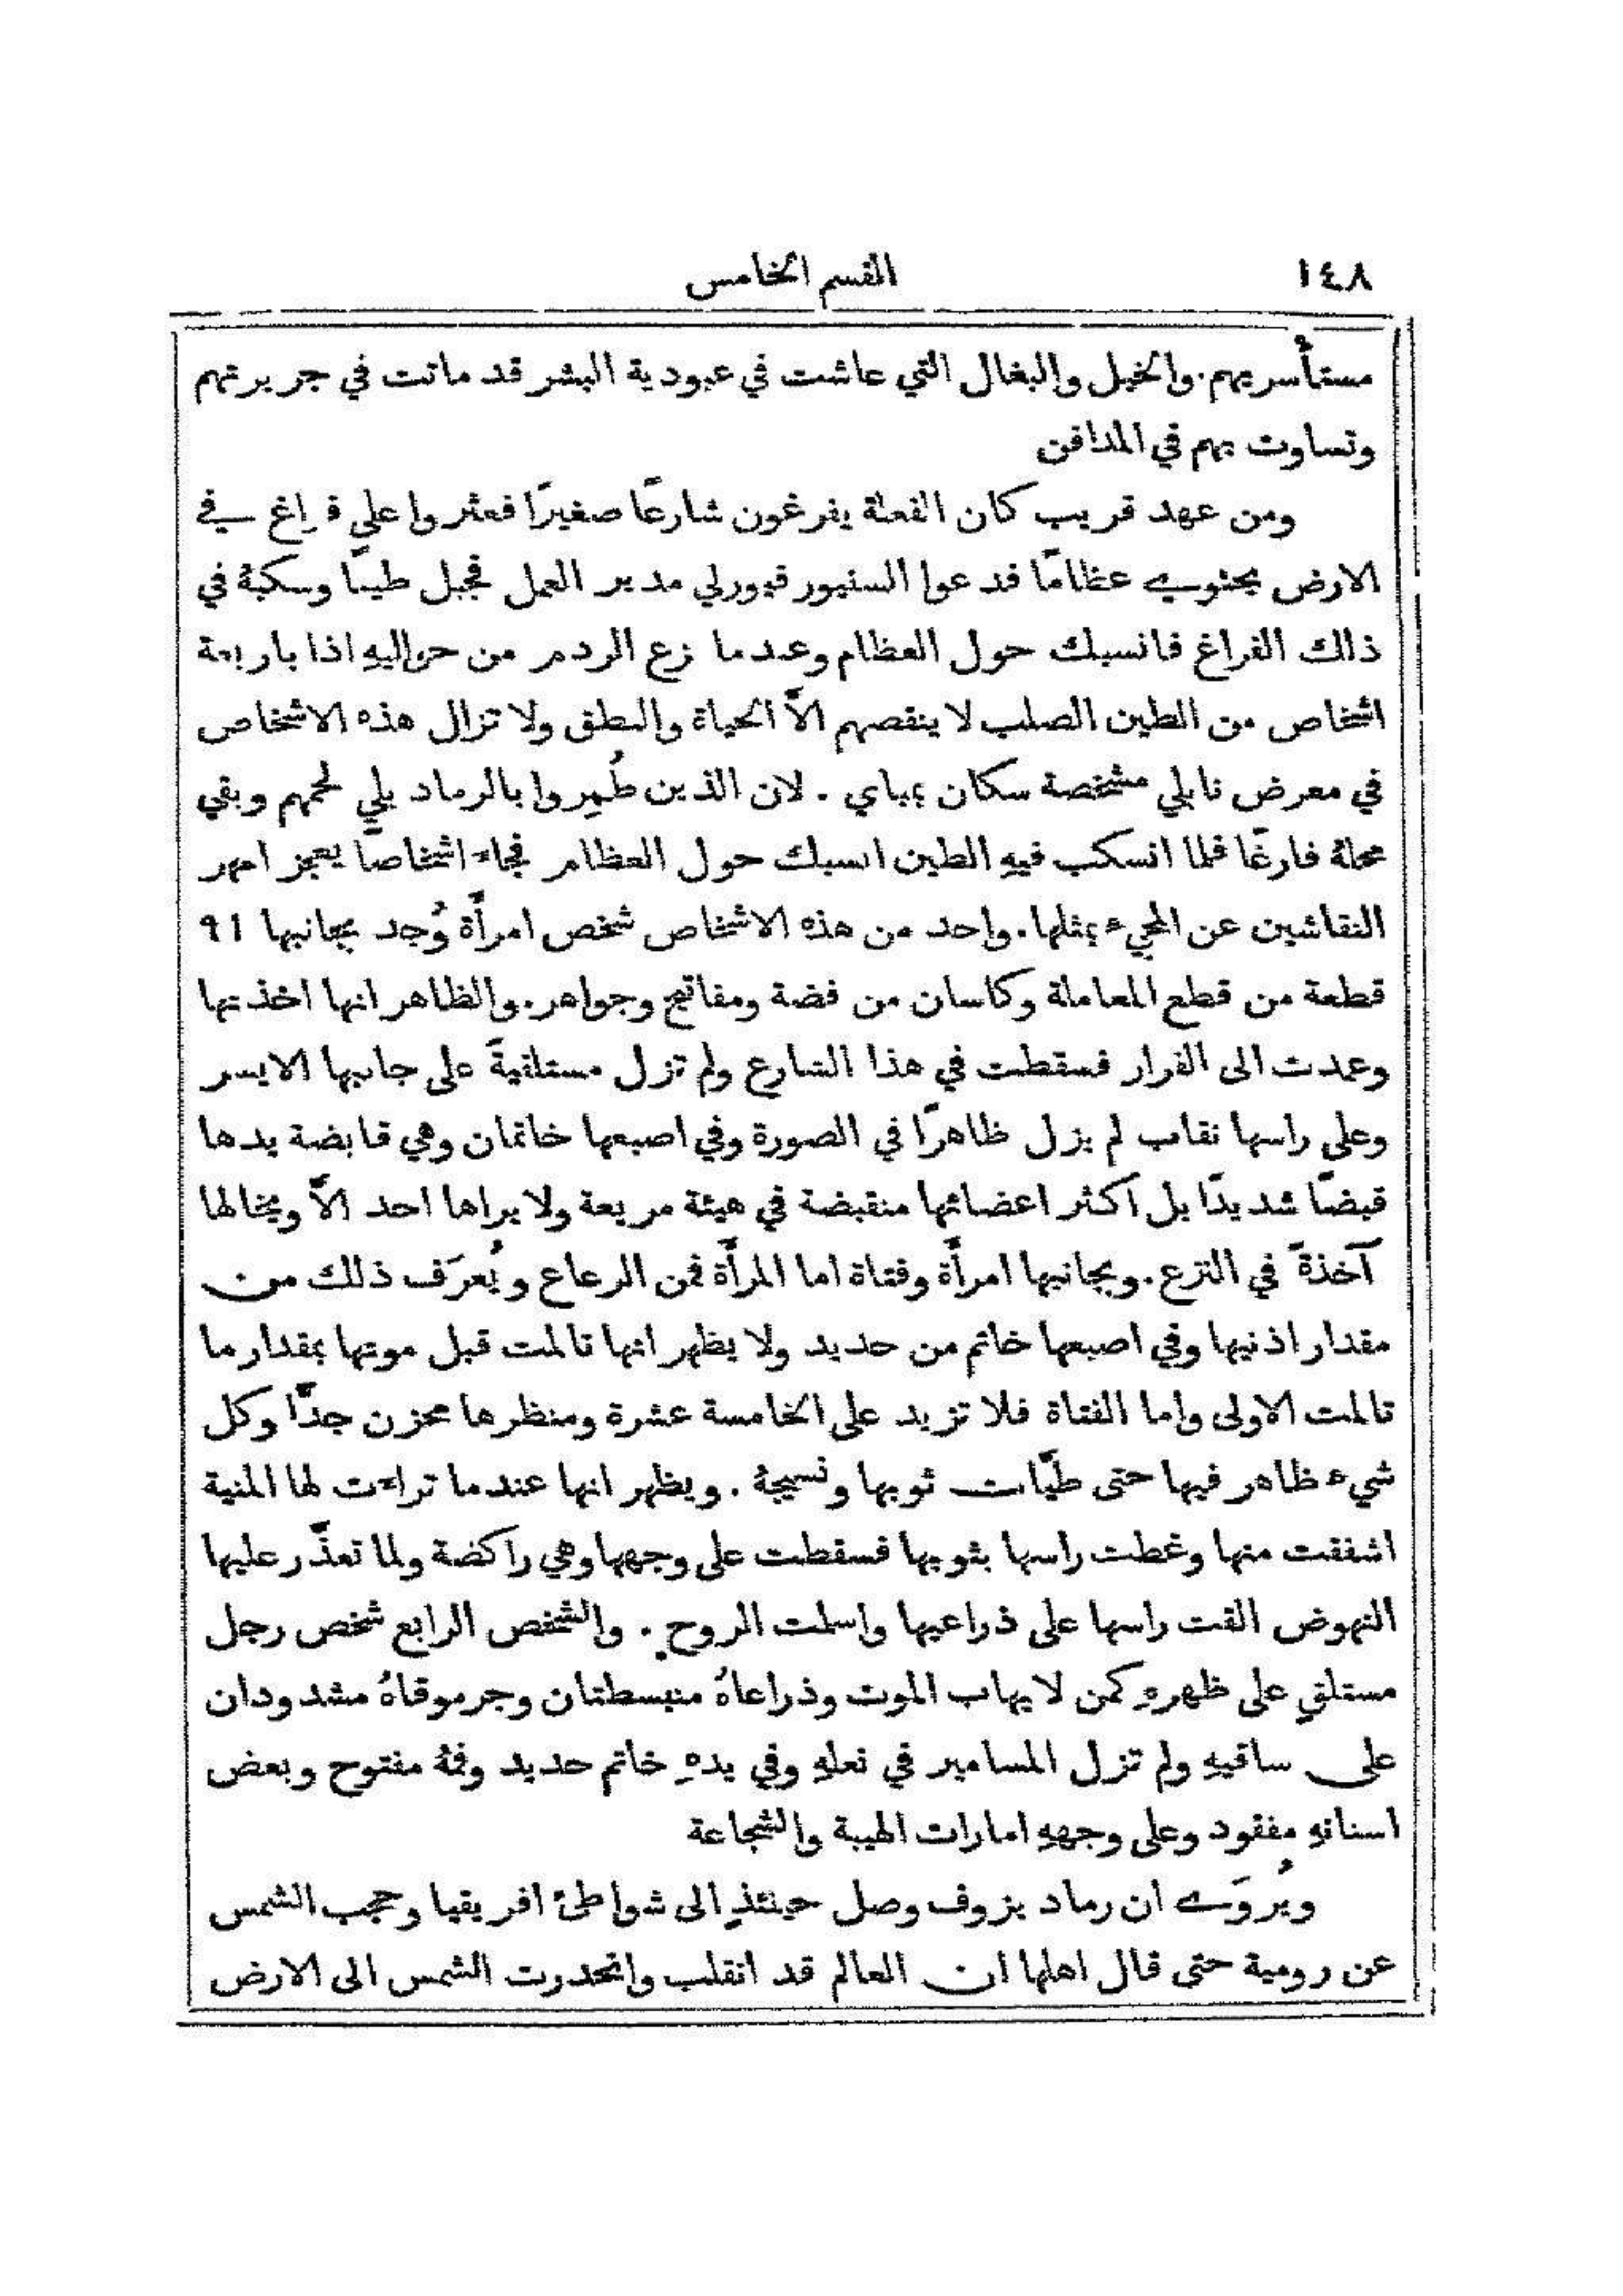 ١٤٨ القسم الخامس
مستأسريهم. والخيل والبغال التي عاشت في عبودية البشر قد ماتت في جريرتهم
وتساوت بهم في المدافن
ومن عهد قريب كان الفعلة يفرغون شارعًا صغيرًا فعثروا على فراغ في
الارض يحتوي عظامًا فدعوا السنيور فيورلي مدير العمل فجبل طينًا وسكبهُ في
ذلك الفراغ فانسبك حول العظام وعندما نزع الردم من حواليهِ اذا باربعة
اشخاص من الطين الصلب لا ينقصهم الاَّ الحياة والنطق ولا تزال هذه الاشخاص
في معرض نابلي مشخصة سكان بمباي . لان الذين طُمِروا بالرماد بلي لحمهم وبقي
محلهُ فارغًا فلما انسكب فيهِ الطين انسبك حول العظام فجاء اشخاصًا يعجز امهر
النقاشين عن المجيء بمثلها. واحد من هذه الاشخاص شخص امرأَة وُجد بجانبها ٩١
قطعة من قطع المعاملة وكاسان من فضة ومفاتيح وجواهر. والظاهر انها اخذتها
وعمدت الى الفرار فسقطت في هذا الشارع ولم تزل مستلقيةً على جانبها الايسر
وعلى راسها نقاب لم يزل ظاهرًا في الصورة وفي اصبعها خاتمان وهي قابضة يدها
قبضًا شديدًا بل اكثر اعضائها منقبضة في هيئة مريعة ولا يراها احد الاَّ ويخالها
آخذةً في النزع. وبجانبها امرأَة وفتاة اما المرأَة فمن الرعاع ويُعرَف ذلك من
مقدار اذنيها وفي اصبعها خاتم من حديد ولا يظهر انها تالمت قبل موتها بمقدار ما
تالمت الاولى واما الفتاة فلا تزيد على الخامسة عشرة ومنظرها محزن جدًّا وكل
شيء ظاهر فيها حتى طيَّات ثوبها ونسيجهُ . ويظهر انها عندما تراءت لها المنية
اشفقت منها وغطت راسها بثوبها فسقطت على وجهها وهي راكضة ولما تعذَّر عليها
النهوض القت راسها على ذراعيها واسلمت الروح . والشخص الرابع شخص رجل
مستلقٍ على ظهرهِ كمن لا يهاب الموت وذراعاهُ منبسطتان وجرموقاهُ مشدودان
على ساقيهِ ولم تزل المسامير في نعلهِ وفي يدهِ خاتم حديد وفمهُ مفتوح وبعض
اسنانهِ مفقود وعلى وجههِ امارات الهيبة والشجاعة
ويُروَى ان رماد يزوف وصل حينئذٍ الى شواطئ افريقيا وحجب الشمس
عن رومية حتى قال اهلها ان العالم قد انقلب وانحدرت الشمس الى الارض